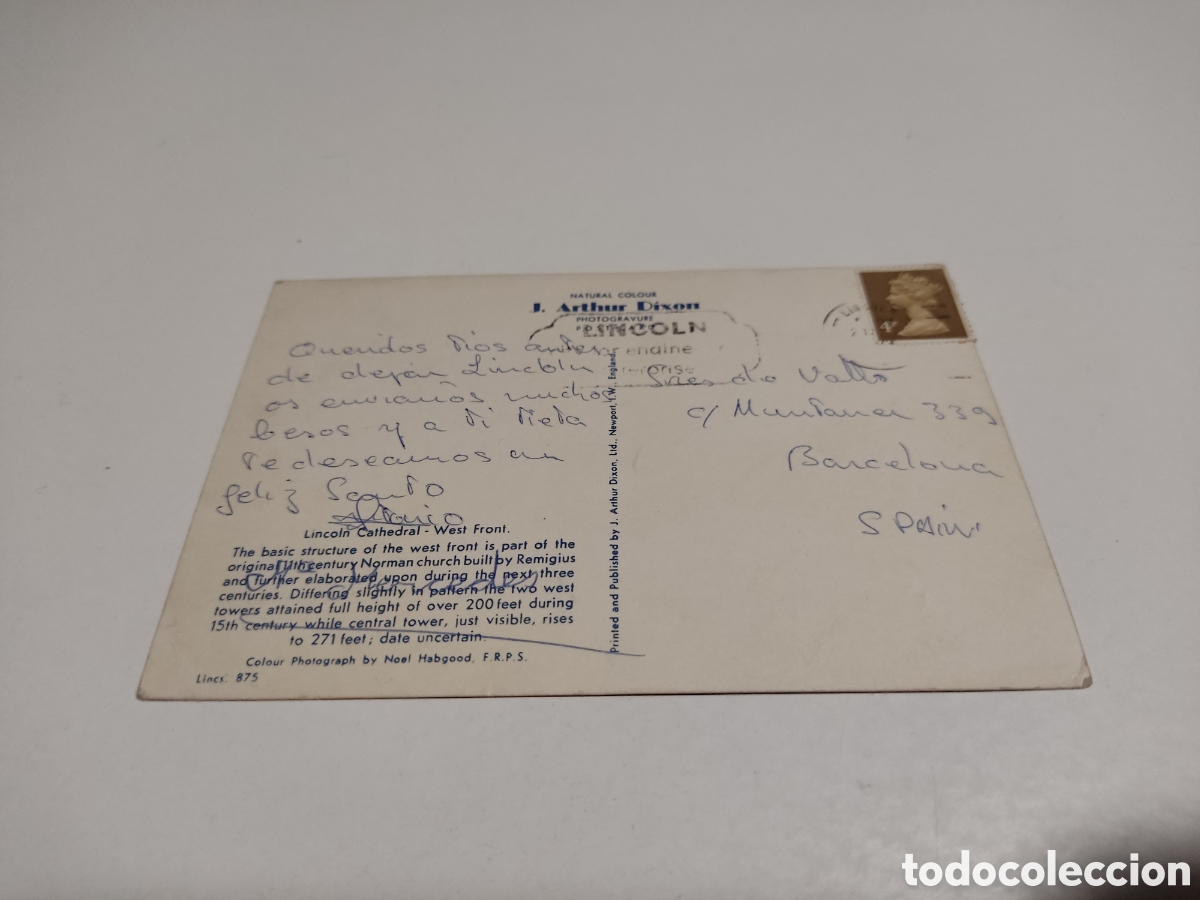 NATURAL COLOUR
J. Arthur Dixon
PHOTOGRAVURE
LINCOLN
engine
4
Queridos Tios antes
de dejar Lincoln
os enviamos muchos
besos y a ti Tieta
te deseamos un
feliz Santo
Antonio
Mª Mercedes
Sres de Valls
c/ Muntaner 339
Barcelona
SPAIN
Lincoln Cathedral - West Front.
The basic structure of the west front is part of the
original 11th century Norman church built by Remigius
and further elaborated upon during the next three
centuries. Differing slightly in pattern the two west
towers attained full height of over 200 feet during
15th century while central tower, just visible, rises
to 271 feet; date uncertain.
Colour Photograph by Noel Habgood, F.R.P.S.
Lincs. 875
Printed and Published by J. Arthur Dixon, Ltd., Newport, I.W., England.
todocoleccion